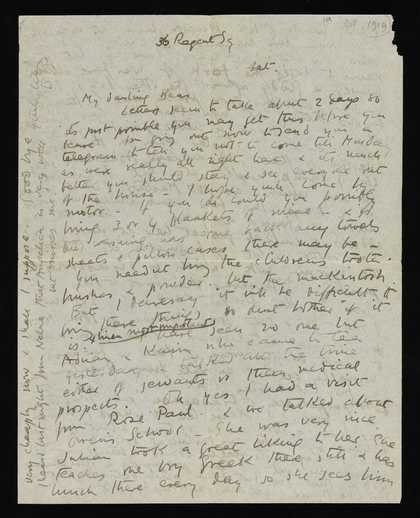 1919
36 Regent Sq
Sat.
My Darling Bear
Letters seem to take about 2 days so
it's just possible you may get this before you
leave. I'm going out now to send you a
telegram to tell you not to come till
as we're really all right here & it's much
better you should stay & see everyone out
of the house - I hope you'll come by
motor - if you do could you possibly
bring 3 or 4 blankets & also
any towels
sheets & pillow cases there may be -
You needn't bring the children's tooth
brushes & powder but the mackintosh
I daresay it will be difficult to
bring these things so don't bother if it
is. linen most important I have seen no one but
Adrian & Karin who came to tea
yesterday & talked all the time
either of servants or their medical
prospects. Oh yes, I had a visit
from Rose Paul & we talked about
Owen's School - She was very nice
Julian took a great liking to her. She
teaches one boy Greek there still & has
lunch there every day so she sees him
very cheaply now & shall I suppose. Good bye
I heard last night from Nellie that